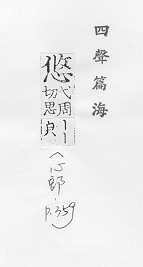 四聲篇海
悠
弋周
切思
心部. p.359